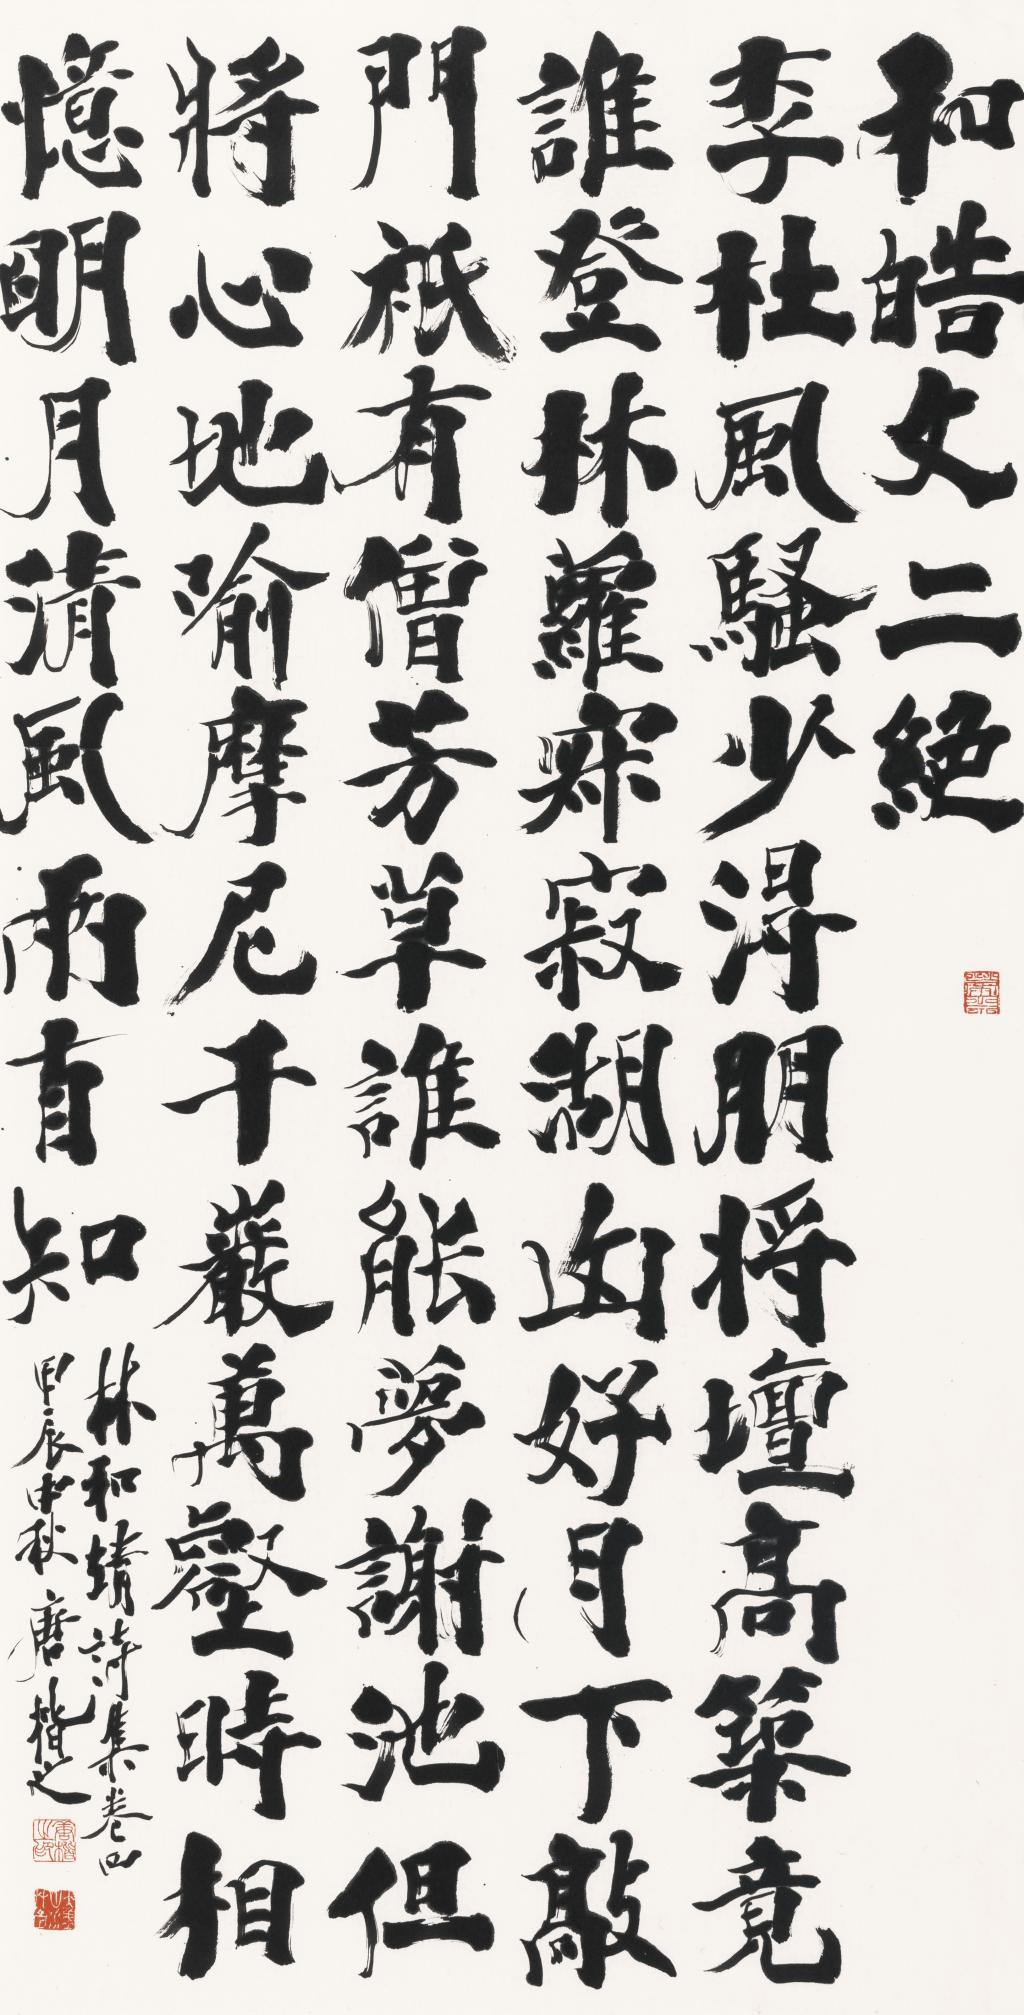 和皓文二絶
李杜風騷少得朋將壇高築竟
誰登林蘿寂寂湖山好月下敲
門祇有僧芳草誰能夢謝池但
將心地喻摩尼千巖萬壑時相
憶明月清風兩自知
林和靖詩集卷四
甲辰中秋 唐楷之